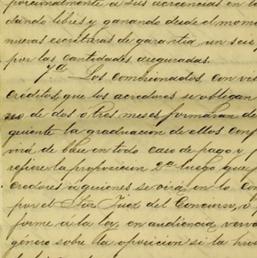 porcionalmente a sus acreencias en la
dando libres y ganando desde el mome
nuevas escrituras de garantia un seis
por las cantidades aseguradas.
7ª Los comisionados con vis
créditos, que los acredores se obligan
de dos o tres meses formaran de
guiente la graduacion de ellos conf
virá de base en todo caso de pago y
refiere la proposicion 2ª luego que
credores á quienes se oirá en lo Con
por el Sor Juez del Concurso, o
forme á la ley, en audiencia verva
género sobre la oposicion si la hu